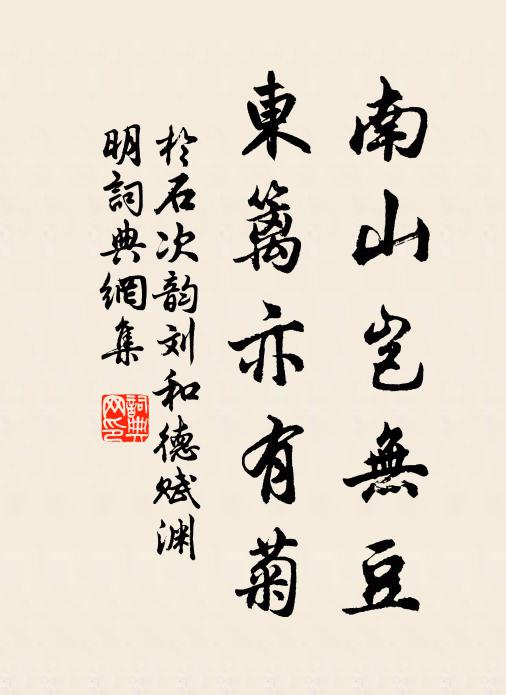 南山岂無豆
東篱亦有菊
於石次韵刘和德赋渊
明詞典網集
詞典网印